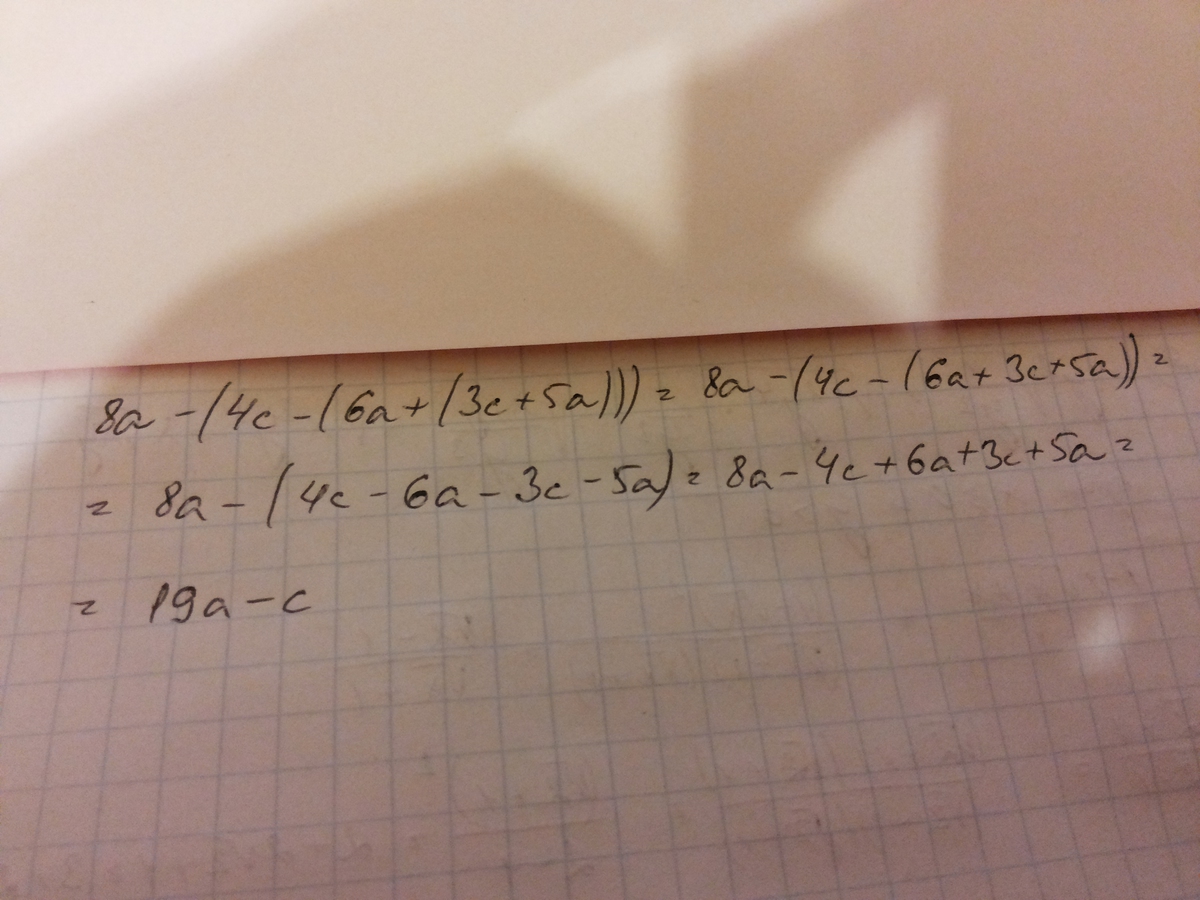 8a - (4c - (6a + (3c + 5a))) = 8a - (4c - (6a + 3c + 5a)) =
= 8a - (4c - 6a - 3c - 5a) = 8a - 4c + 6a + 3c + 5a =
= 19a - c